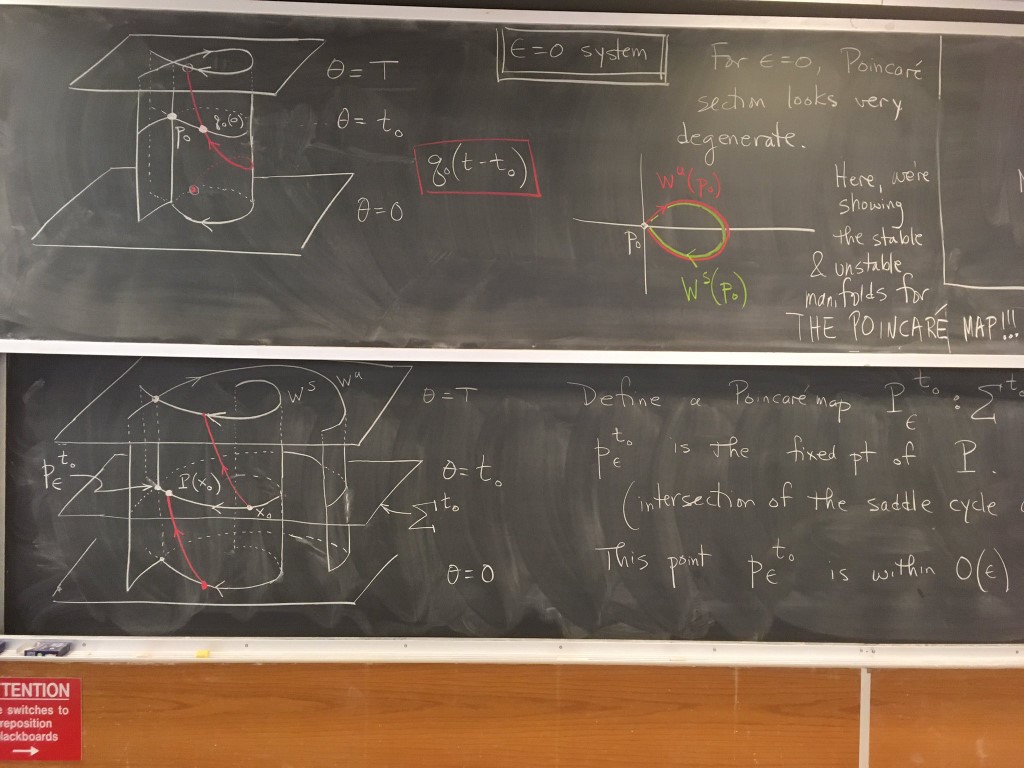 θ = T
θ = t₀
θ = 0
p₀
q₀(0)
q₀(t-t₀)
ε=0 system
For ε=0, Poincaré
section looks very
degenerate.
Wᵘ(p₀)
p₀
Wˢ(p₀)
Here, we're
showing
the stable
& unstable
manifolds for
THE POINCARÉ MAP!!!
Wˢ
Wᵘ
θ = T
p_ε^{t₀}
P(x₀)
x₀
θ = t₀
Σ^{t₀}
θ = 0
Define a Poincaré map P_ε^{t₀} : Σ^{t₀}
p_ε^{t₀} is the fixed pt of P.
(intersection of the saddle cycle
This point p_ε^{t₀} is within O(ε)
TTENTION
e switches to
reposition
lackboards